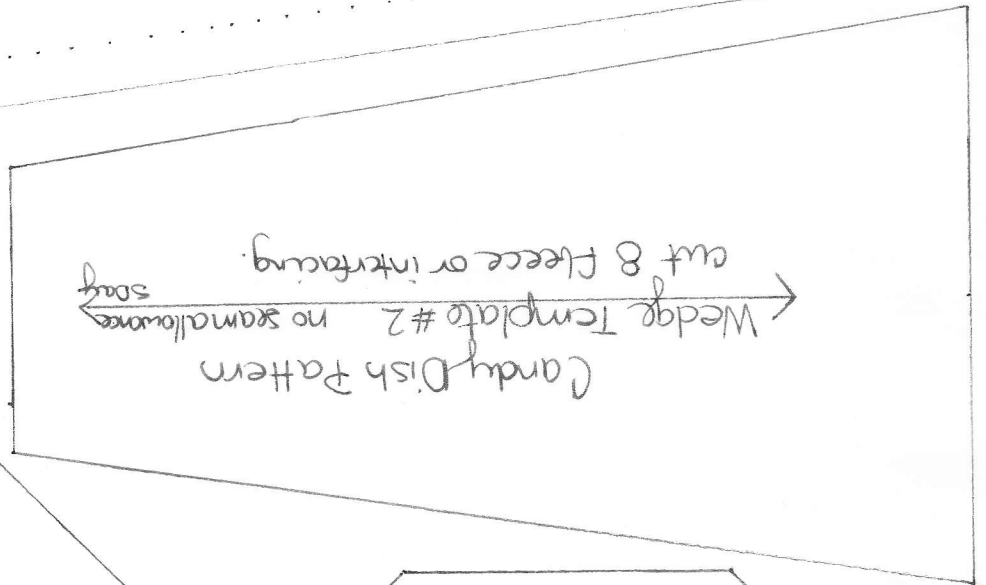 Candy Dish Pattern
Wedge Template #2 no seam allowance
cut 8 fleece or interfacing.